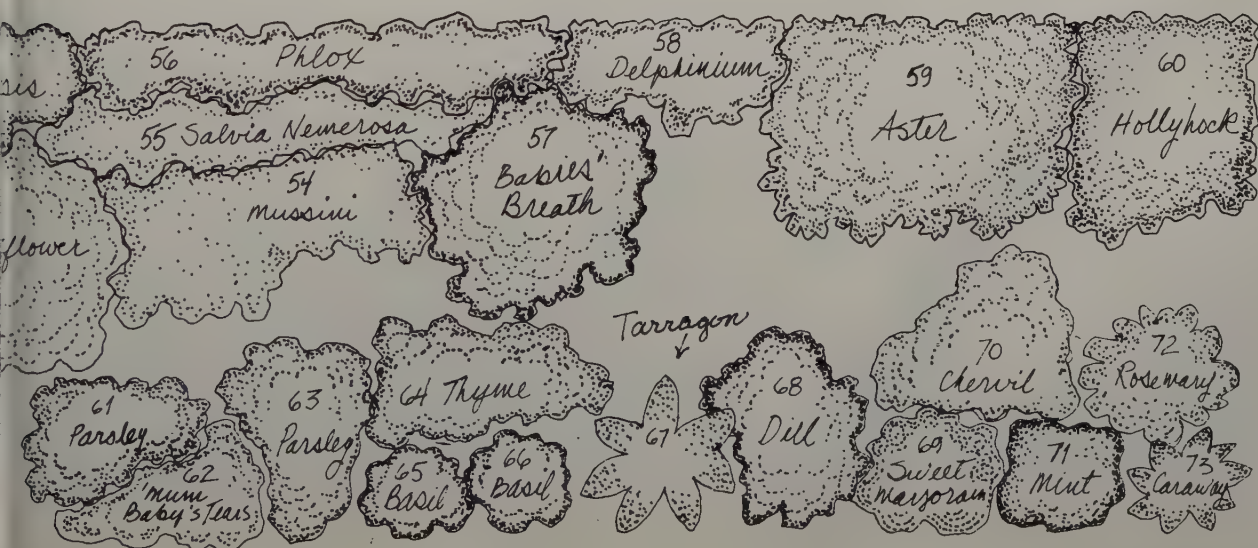 sis
56 Phlox
58
Delphinium
59
Aster
60
Hollyhock
55 Salvia Nemerosa
57
Babies'
Breath
54
Mussini
flower
Tarragon
61
Parsley
62
'Mum
Baby's Tears
63
Parsley
64 Thyme
65
Basil
66
Basil
67
68
Dill
70
Chervil
69
Sweet
Marjoram
71
Mint
72
Rosemary
73
Caraway